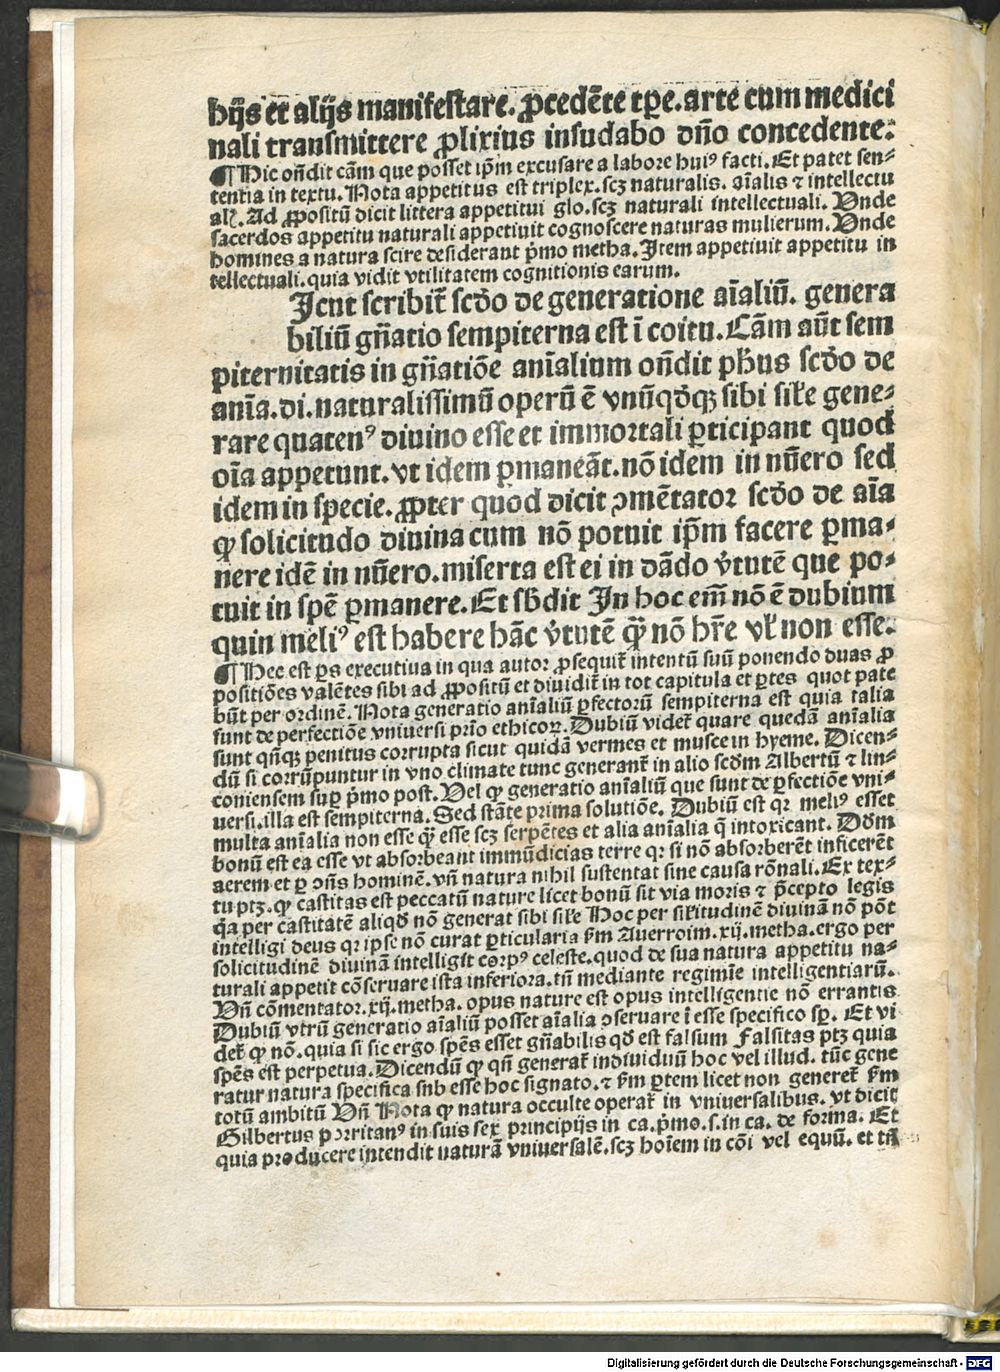 hijs et alijs manifestare. ꝓcedēte tp̄e. arte cum medici
nali transmittere ꝓlixius insudabo dn̄o concedente.
¶ Hic on̄dit cām que posset ip̄m excusare a labore huiꝰ facti. Et patet sen⸗
tentia in textu. Nota appetitus est triplex. scꝫ naturalis. aīalis ⁊ intellectu
al̄. Ad ꝓpositū dicit littera appetitui glo. scꝫ naturali intellectuali. Vnde
sacerdos appetitu naturali appetiuit cognoscere naturas mulierum. Vnde
homines a natura scire desiderant p̄mo metha. Item appetiuit appetitu in
tellectuali. quia vidit vtilitatem cognitionis earum.
Icut scribit̄ scd̄o de generatione aīaliū. genera
biliū gn̄atio sempiterna est ī coitu. Cām aūt sem
piternitatis in gn̄atiōe anīalium on̄dit ph̄us scd̄o de
anīa. di. naturalissimū operū ē vnūqd̄qꝫ sibi sil̄e gene⸗
rare quatenꝰ diuino esse et immortali ꝑticipant quod
oīa appetunt. vt idem ꝑmaneāt. nō idem in nūero sed
idem in specie. ꝓpter quod dicit ꝯmētator scd̄o de aīa
ꝙ solicitudo diuina cum nō potuit ip̄m facere ꝑma⸗
nere idē in nūero. miserta est ei in dādo v̄tutē que po⸗
tuit in spē ꝑmanere. Et sb̄dit In hoc em̄ nō ē dubium
quin meliꝰ est habere hāc v̄tutē qꝫ̄ nō hr̄e vl̄ non esse.
¶ Hec est ꝑs executiua in qua autor ꝓsequit̄ intentū suū ponendo duas ꝓ
positiōes valētes sibi ad ꝓpositū et diuidit̄ in tot capitula et ꝑtes quot pate
būt per ordinē. Nota generatio anīaliū ꝑfectorū sempiterna est quia talia
sunt de perfectiōe vniuersi prīo ethicoꝝ. Dubiū videt̄ quare quedā anīalia
sunt qn̄qꝫ penitus corrupta sicut quidā vermes et musce in hyeme. Dicen⸗
dū si corrūpuntur in vno climate tunc generant̄ in alio scd̄m Albertū ⁊ lin⸗
coniensem suꝑ p̄mo post. Vel ꝙ generatio anīaliū que sunt de ꝑfectiōe vni⸗
uersi. illa est sempiterna. Sed stāte prima solutiōe. Dubiū est qr meliꝰ esset
multa anīalia non esse qꝫ̄ esse scꝫ serpētes et alia anīalia q̄ intoxicant. Dd̄m
bonū est ea esse vt absorbeant immūdicias terre qr si nō absorberēt inficerēt
aerem et ꝑ ꝯn̄s hominē. vn̄ natura nihil sustentat sine causa rōnali. Ex tex⸗
tu ptꝫ. ꝙ castitas est peccatū nature licet bonū sit via moris ⁊ p̄cepto legis
q̄a per castitatē aliqd̄ nō generat sibi sil̄e Hoc per sil̄itudinē diuinā nō pōt
intelligi deus qr ipse nō curat ꝑticularia s̄m Auerroim. xij. metha. ergo per
solicitudinē diuinā intelligit̄ corpꝰ celeste. quod de sua natura appetitu na⸗
turali appetit cōseruare ista inferiora. tn̄ mediante regimīe intelligentiarū.
Vn̄ cōmentator. xij. metha. opus nature est opus intelligentie nō errantis
Dubiū vtrū generatio aīaliū posset aīalia ꝯseruare ī esse specifico sꝑ. Et vi
det̄ ꝙ nō. quia si sic ergo spēs esset gn̄abilis qd̄ est falsum Falsitas ptꝫ quia
spēs est perpetua. Dicendū ꝙ qn̄ generat̄ indiuiduū hoc vel illud. tūc gene
ratur natura specifica sub esse hoc signato. ⁊ s̄m ꝑtem licet non generet̄ s̄m
totū ambitū Vn̄ Nota ꝙ natura occulte operat̄ in vniuersalibus. vt dicit
Gilbertus porritanꝰ in suis sex principijs in ca. p̄mo. s. in ca. de forma. Et
quia producere intendit naturā vniuersalē. scꝫ hoīem in cōi vel equū. et tn̄
Digitalisierung gefördert durch die Deutsche Forschungsgemeinschaft - DFG